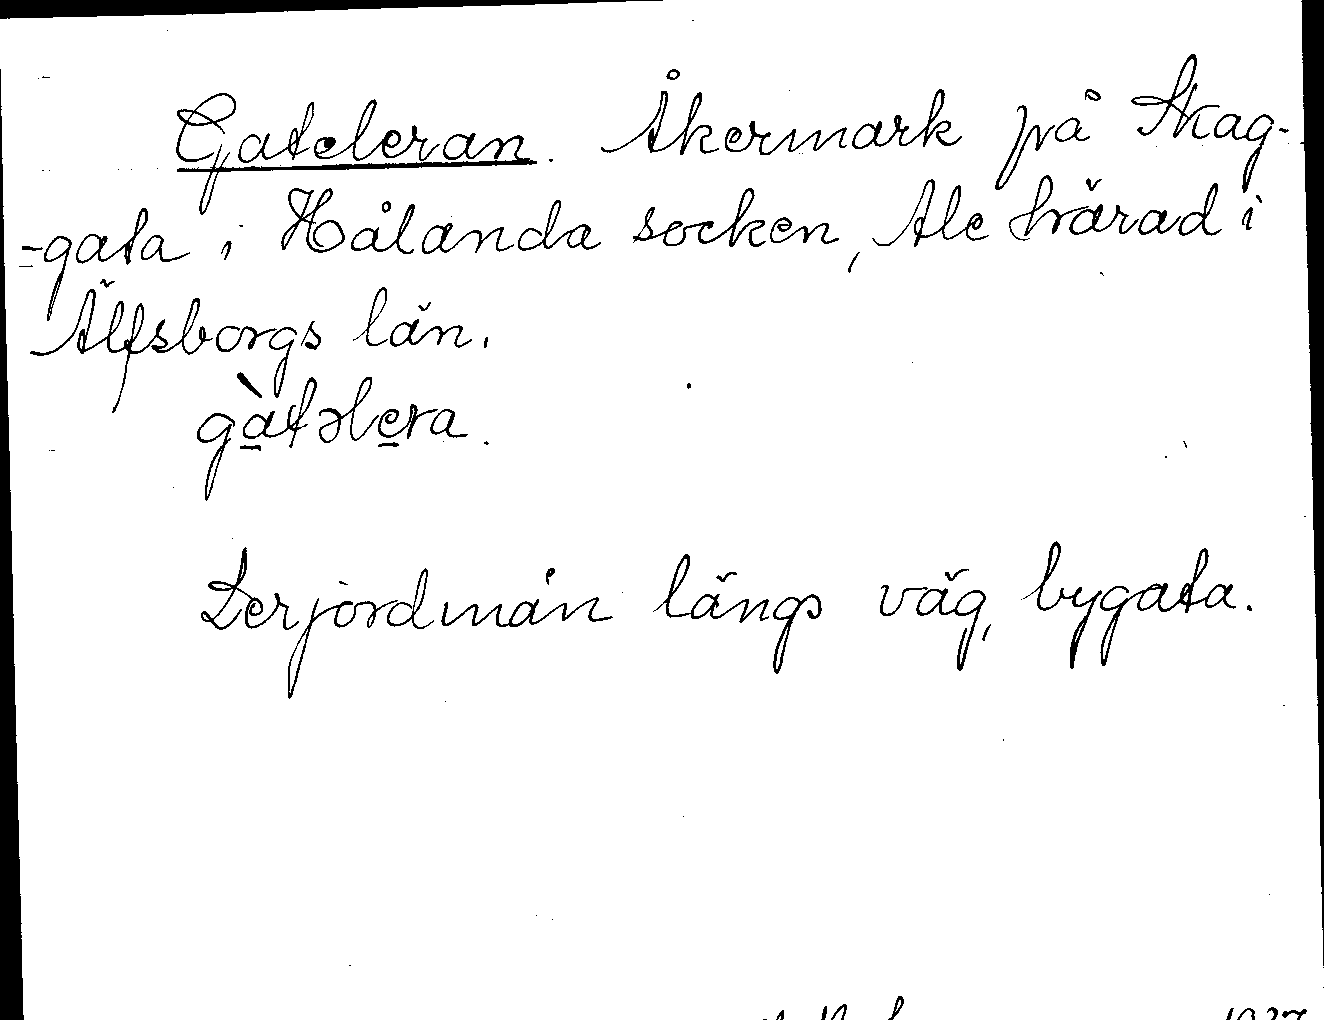 Gateleran. Åkermark på Skag-
-gata i Hålanda socken, Ale härad i
Älfsborgs län.
gàtəlera.
Lerjordmån längs väg, bygata.
1937